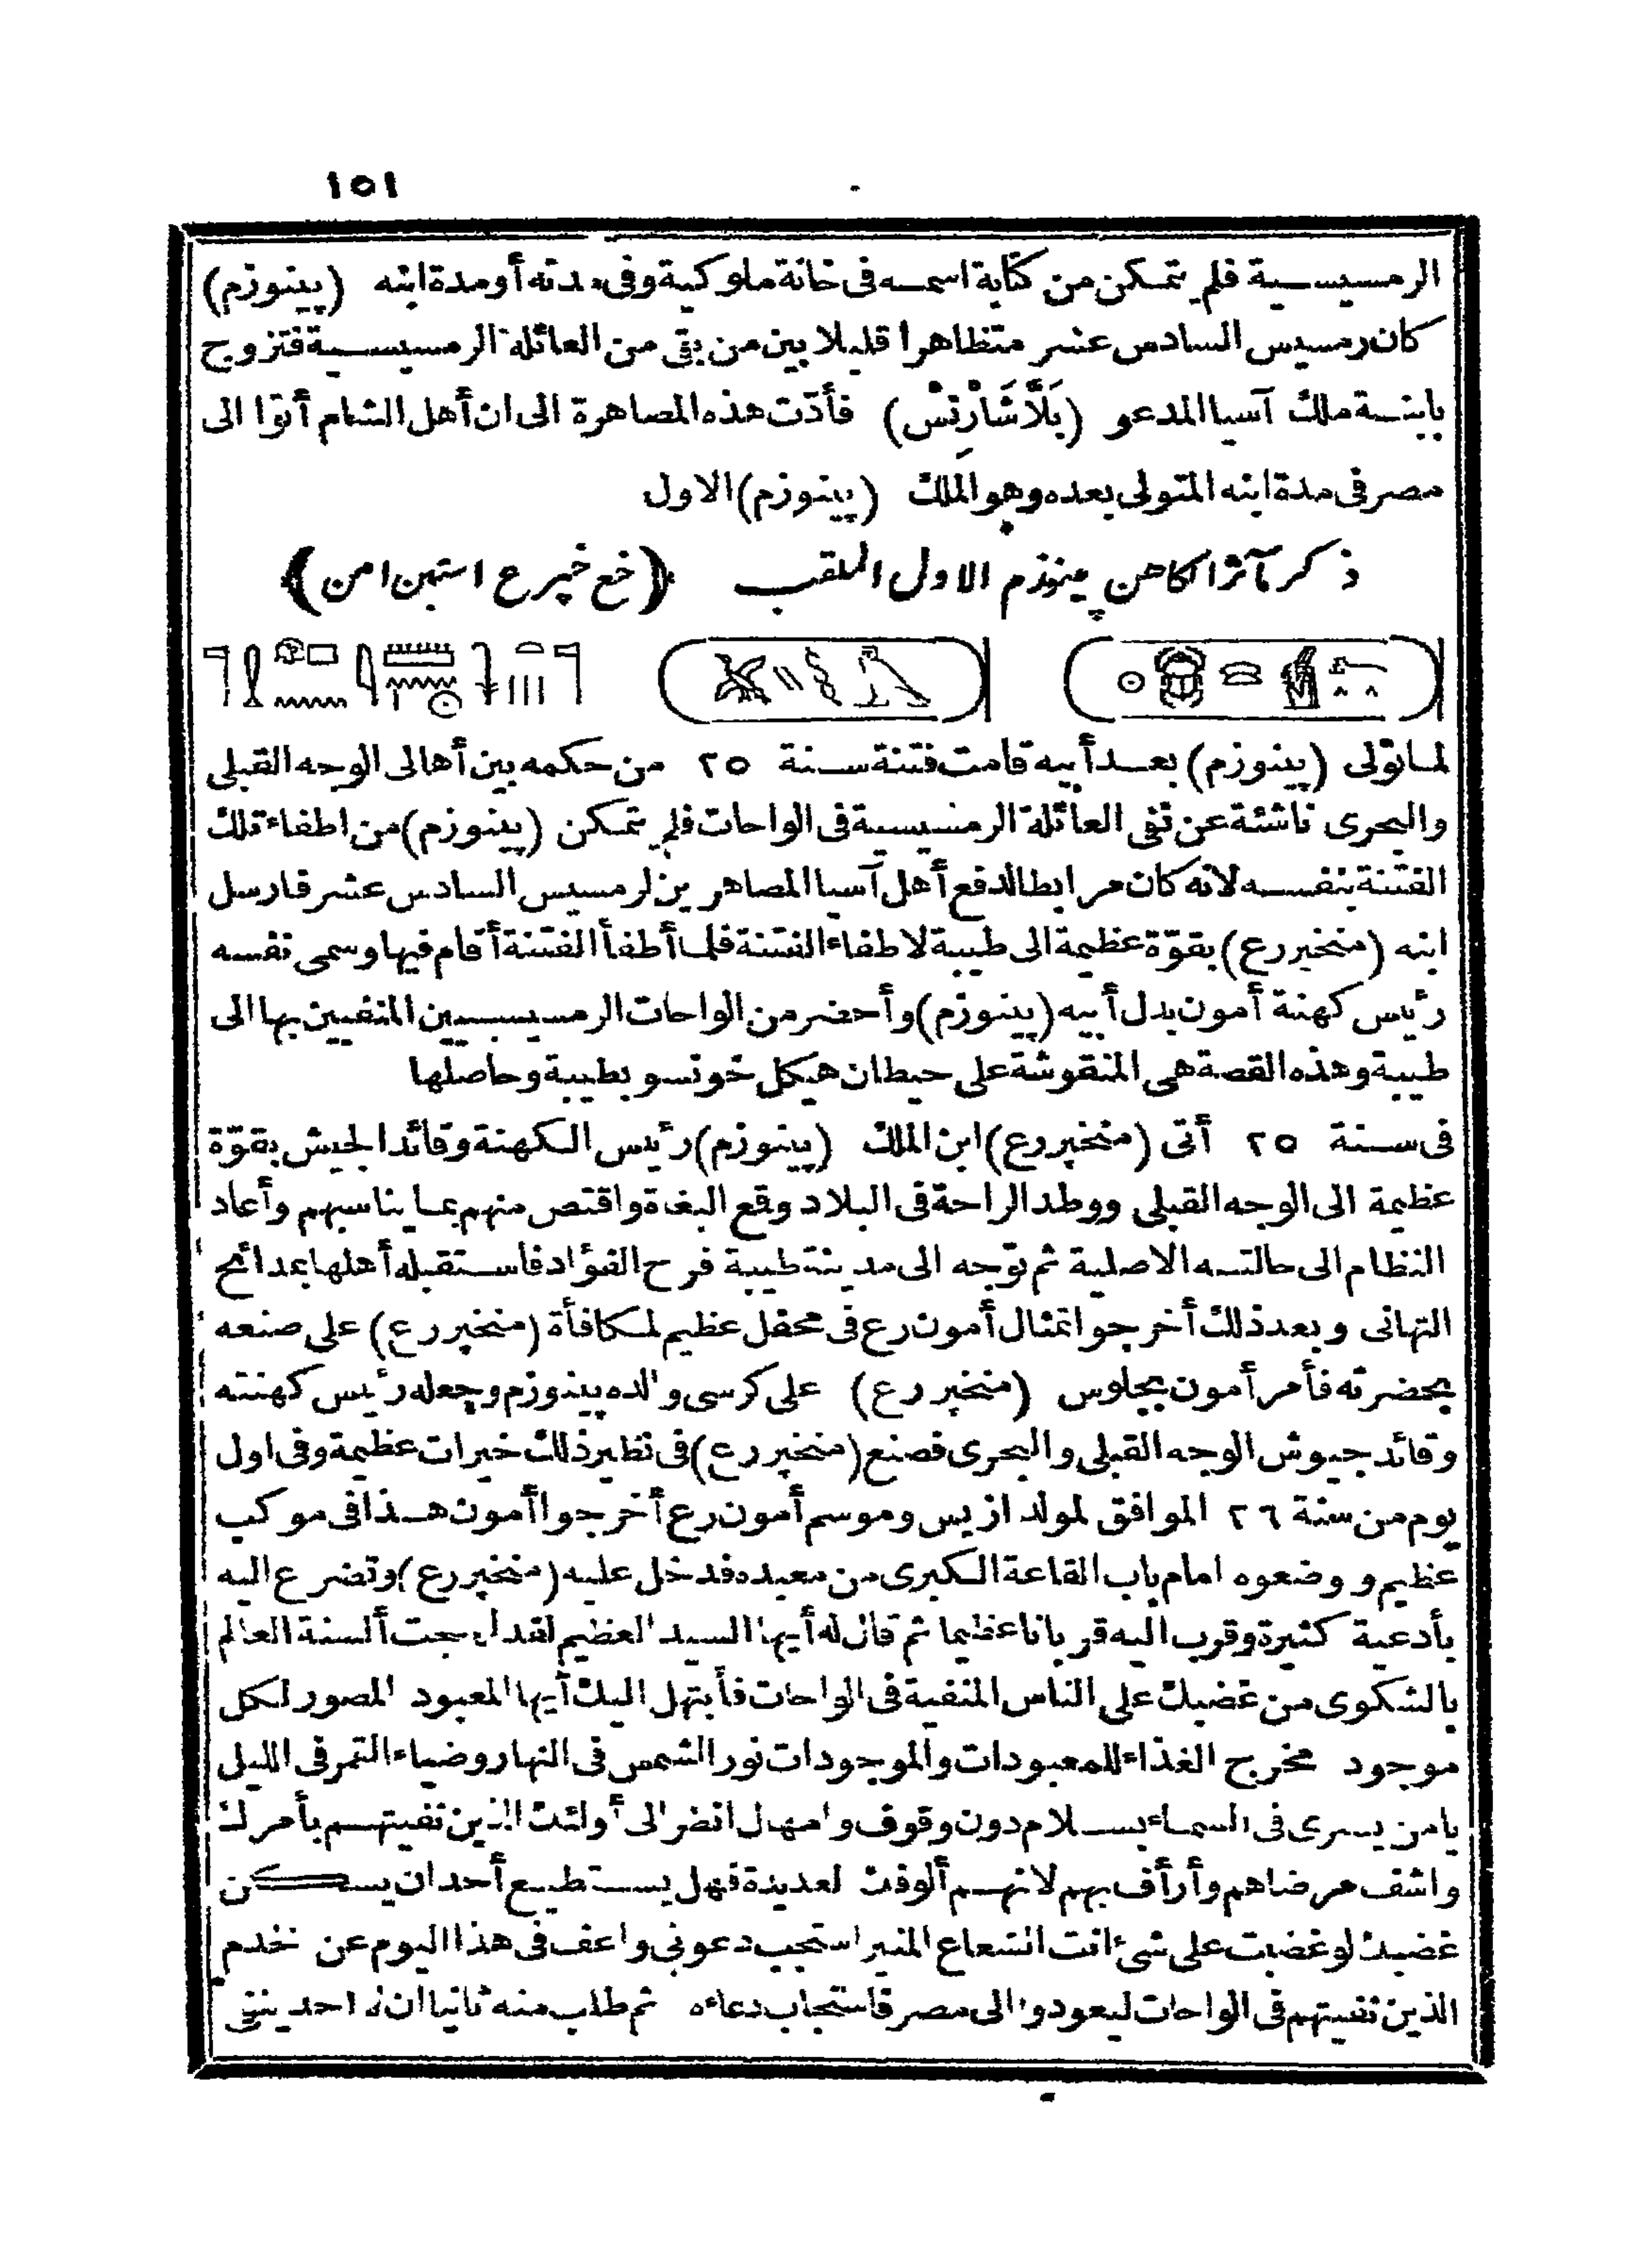 ١٥١
الرمسيسية فلم يتمكن من كتابة اسمه فى خانة ملوكية وفى مدته أو مدة ابنه (پينوزم)
كان رمسيس السادس عشر متظاهرا قليلا بين من بقى من العائلة الرمسيسية فتزوج
بابنة ملك آسيا المدعو (بَلَّاشَارْنِسْ) فأدّت هذه المصاهرة الى ان أهل الشام أتوا الى
مصر فى مدة ابنه المتولى بعده وهو الملك (پينوزم) الاول
ذكر مآثر الكاهن پينوزم الاول الملقب (خع خپر ع استپن امن)
لما تولى (پينوزم) بعد أبيه قامت فتنة سنة ٢٥ من حكمه بين أهالى الوجه القبلى
والبحرى ناشئة عن نفى العائلة الرمسيسية فى الواحات فلم يتمكن (پينوزم) من اطفاء تلك
الفتنة بنفسه لانه كان مرابطا لدفع أهل آسيا المصاهرين لرمسيس السادس عشر فارسل
ابنه (منخپررع) بقوّة عظيمة الى طيبة لاطفاء الفتنة فلما أطفأ الفتنة أقام فيها وسمى نفسه
رئيس كهنة أمون بدل أبيه (پينوزم) وأحضر من الواحات الرمسيسيين المنفيين بها الى
طيبة وهذه القصة هى المنقوشة على حيطان هيكل خونسو بطيبة وحاصلها
فى سنة ٢٥ أتى (منخپررع) ابن الملك (پينوزم) رئيس الكهنة وقائد الجيش بقوّة
عظيمة الى الوجه القبلى ووطد الراحة فى البلاد وقع البغاة واقتص منهم بما يناسبهم وأعاد
النظام الى حالته الاصلية ثم توجه الى مدينة طيبة فرح الفؤاد فاستقبله أهلها بمدائح
التهانى وبعد ذلك أخرجوا تمثال أمون رع فى محفل عظيم لمكافأة (منخپررع) على صنعه
بحضرته فأمر أمون بجلوس (منخپررع) على كرسى والده پينوزم وجعله رئيس كهنته
وقائد جيوش الوجه القبلى والبحرى فصنع (منخپررع) فى نظير ذلك خيرات عظيمة وفى اول
يوم من سنة ٢٦ الموافق لمولد ازيس وموسم أمون رع أخرجوا أمون هذا فى موكب
عظيم ووضعوه امام باب القاعة الكبرى من معبده فدخل عليه (منخپررع) وتضرع اليه
بأدعية كثيرة وقرب اليه قربانا عظيما ثم قال له أيها السيد العظيم لقد لهجت ألسنة العالم
بالشكوى من غضبك على الناس المنفية فى الواحات فأبتهل اليك أيها المعبود المصور لكل
موجود مخرج الغذاء للمعبودات والموجودات نور الشمس فى النهار وضياء القمر فى الليل
يا من يسرى فى السماء بسلام دون وقوف وامهال انظر الى أولئك الذين نفيتهم بأمرك
واشف مرضاهم وأرأف بهم لانهم ألوف العديدة فهل يستطيع أحد ان يسكن
غضبك لو غضبت على شئ انت الشعاع المنير استجب دعوتى واعف فى هذا اليوم عن خدم
الذين نفيتهم فى الواحات ليعودوا الى مصر فاستجاب دعاءه ثم طلب منه ثانيا ان احد ينتى